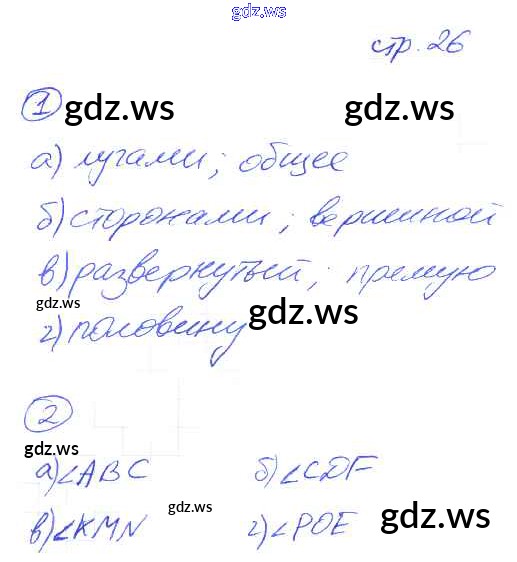 gdz.ws
стр. 26
1 gdz.ws gdz.ws
а) лучами; общее
б) сторонами; вершиной
в) развернутый; премую
gdz.ws gdz.ws
г) половину
2
gdz.ws
а) ∠ABC б) ∠CDF
gdz.ws gdz.ws
в) ∠KMN г) ∠POE